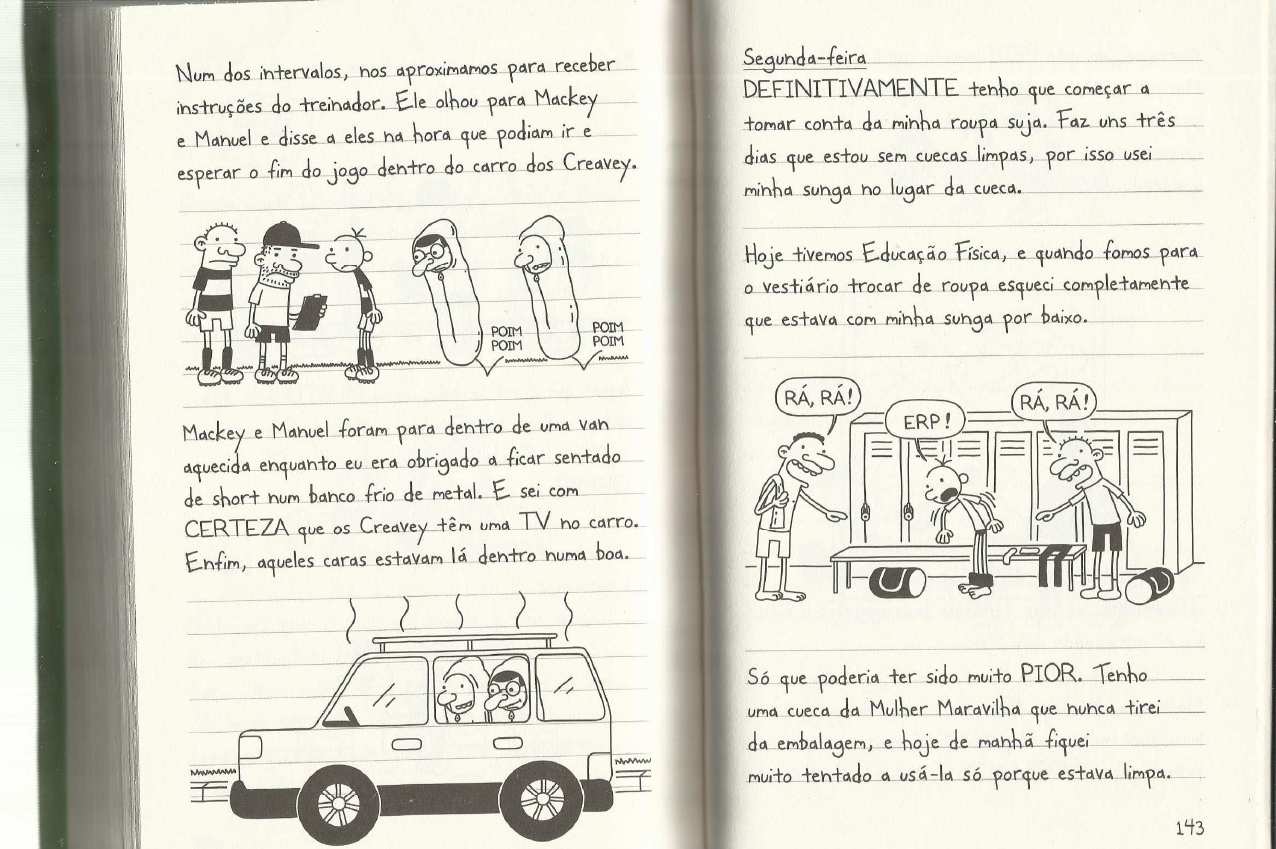 Num dos intervalos, nos aproximamos para receber
instruções do treinador. Ele olhou para Mackey
e Manuel e disse a eles na hora que podiam ir e
esperar o fim do jogo dentro do carro dos Creavey.
POIM
POIM
POIM
POIM
Mackey e Manuel foram para dentro de uma van
aquecida enquanto eu era obrigado a ficar sentado
de short num banco frio de metal. E sei com
CERTEZA que os Creavey têm uma TV no carro.
Enfim, aqueles caras estavam lá dentro numa boa.
Segunda-feira
DEFINITIVAMENTE tenho que começar a
tomar conta da minha roupa suja. Faz uns três
dias que estou sem cuecas limpas, por isso usei
minha sunga no lugar da cueca.
Hoje tivemos Educação Física, e quando fomos para
o vestiário trocar de roupa esqueci completamente
que estava com minha sunga por baixo.
RÁ, RÁ!
ERP!
RÁ, RÁ!
Só que poderia ter sido muito PIOR. Tenho
uma cueca da Mulher Maravilha que nunca tirei
da embalagem, e hoje de manhã fiquei
muito tentado a usá-la só porque estava limpa.
143